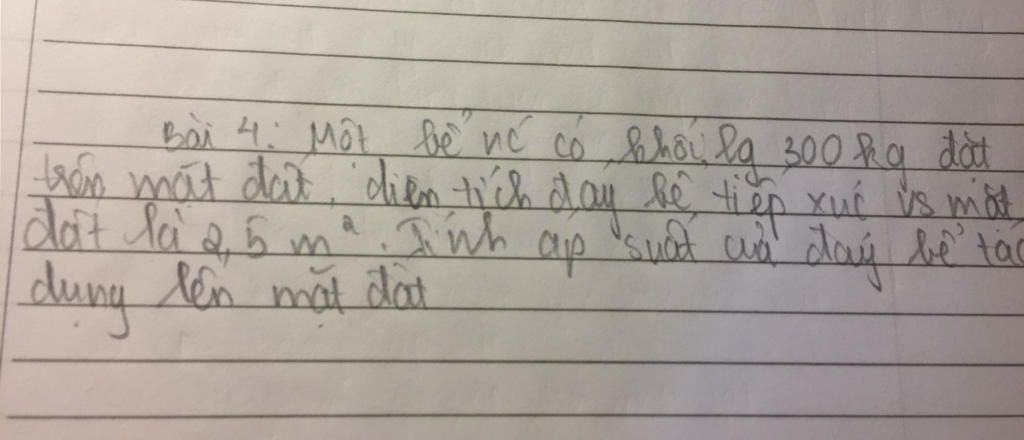 Bài 4: Một bể nc có khối lg 300 kg đặt
trên mặt đất, diện tích đáy bể tiếp xúc vs mặt
đất là 2,5 m². Tính áp suất của đáy bể tác
dụng lên mặt đất